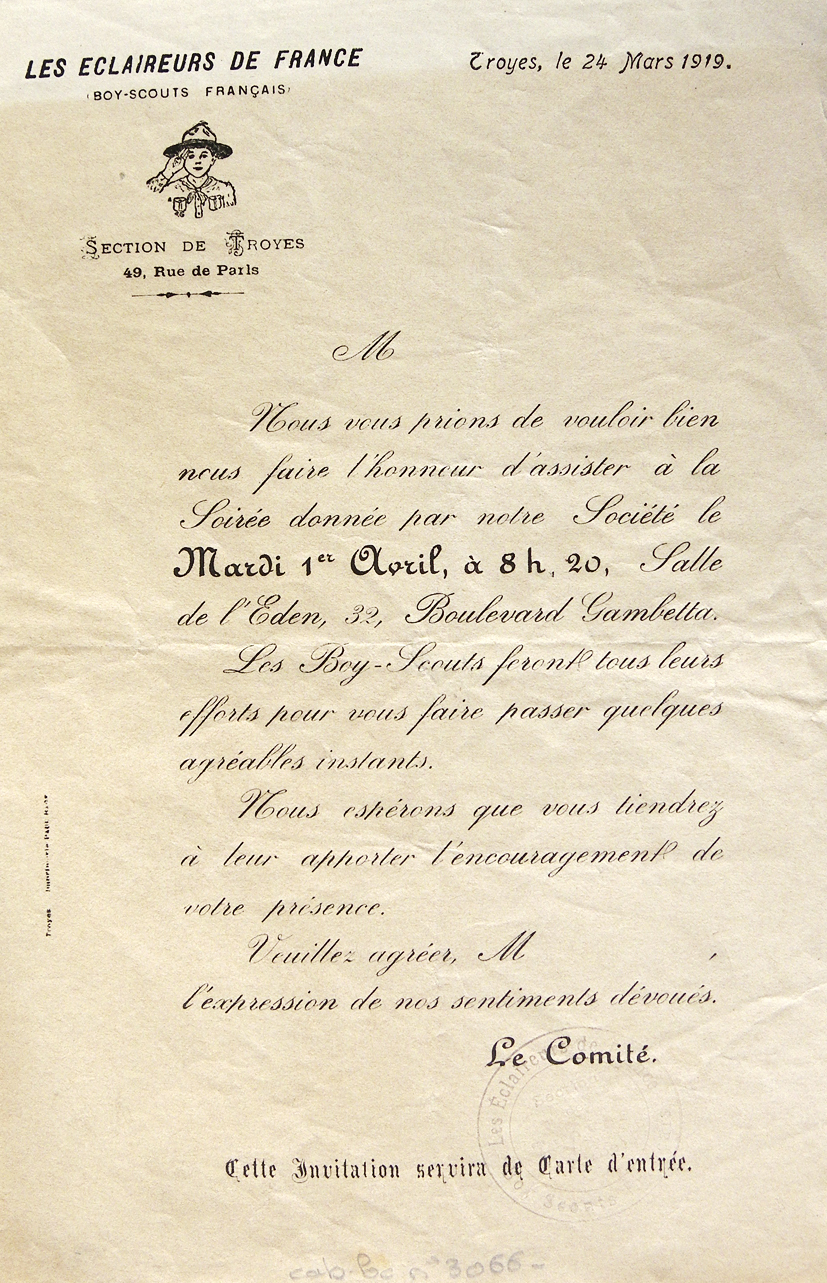 LES ECLAIREURS DE FRANCE
(BOY-SCOUTS FRANÇAIS)
Troyes, le 24 Mars 1919.
SECTION DE TROYES
49, Rue de Paris
M
Nous vous prions de vouloir bien
nous faire l'honneur d'assister à la
Soirée donnée par notre Société le
Mardi 1er Avril, à 8 h, 20, Salle
de l'Eden, 32, Boulevard Gambetta.
Les Boy-Scouts feront tous leurs
efforts pour vous faire passer quelques
agréables instants.
Nous espérons que vous tiendrez
à leur apporter l'encouragement de
votre présence.
Veuillez agréer, M ,
l'expression de nos sentiments dévoués.
Le Comité.
Les Éclaireurs de
Scouts
Cette Invitation servira de Carte d'entrée.
Troyes Imprimerie
n° 3066